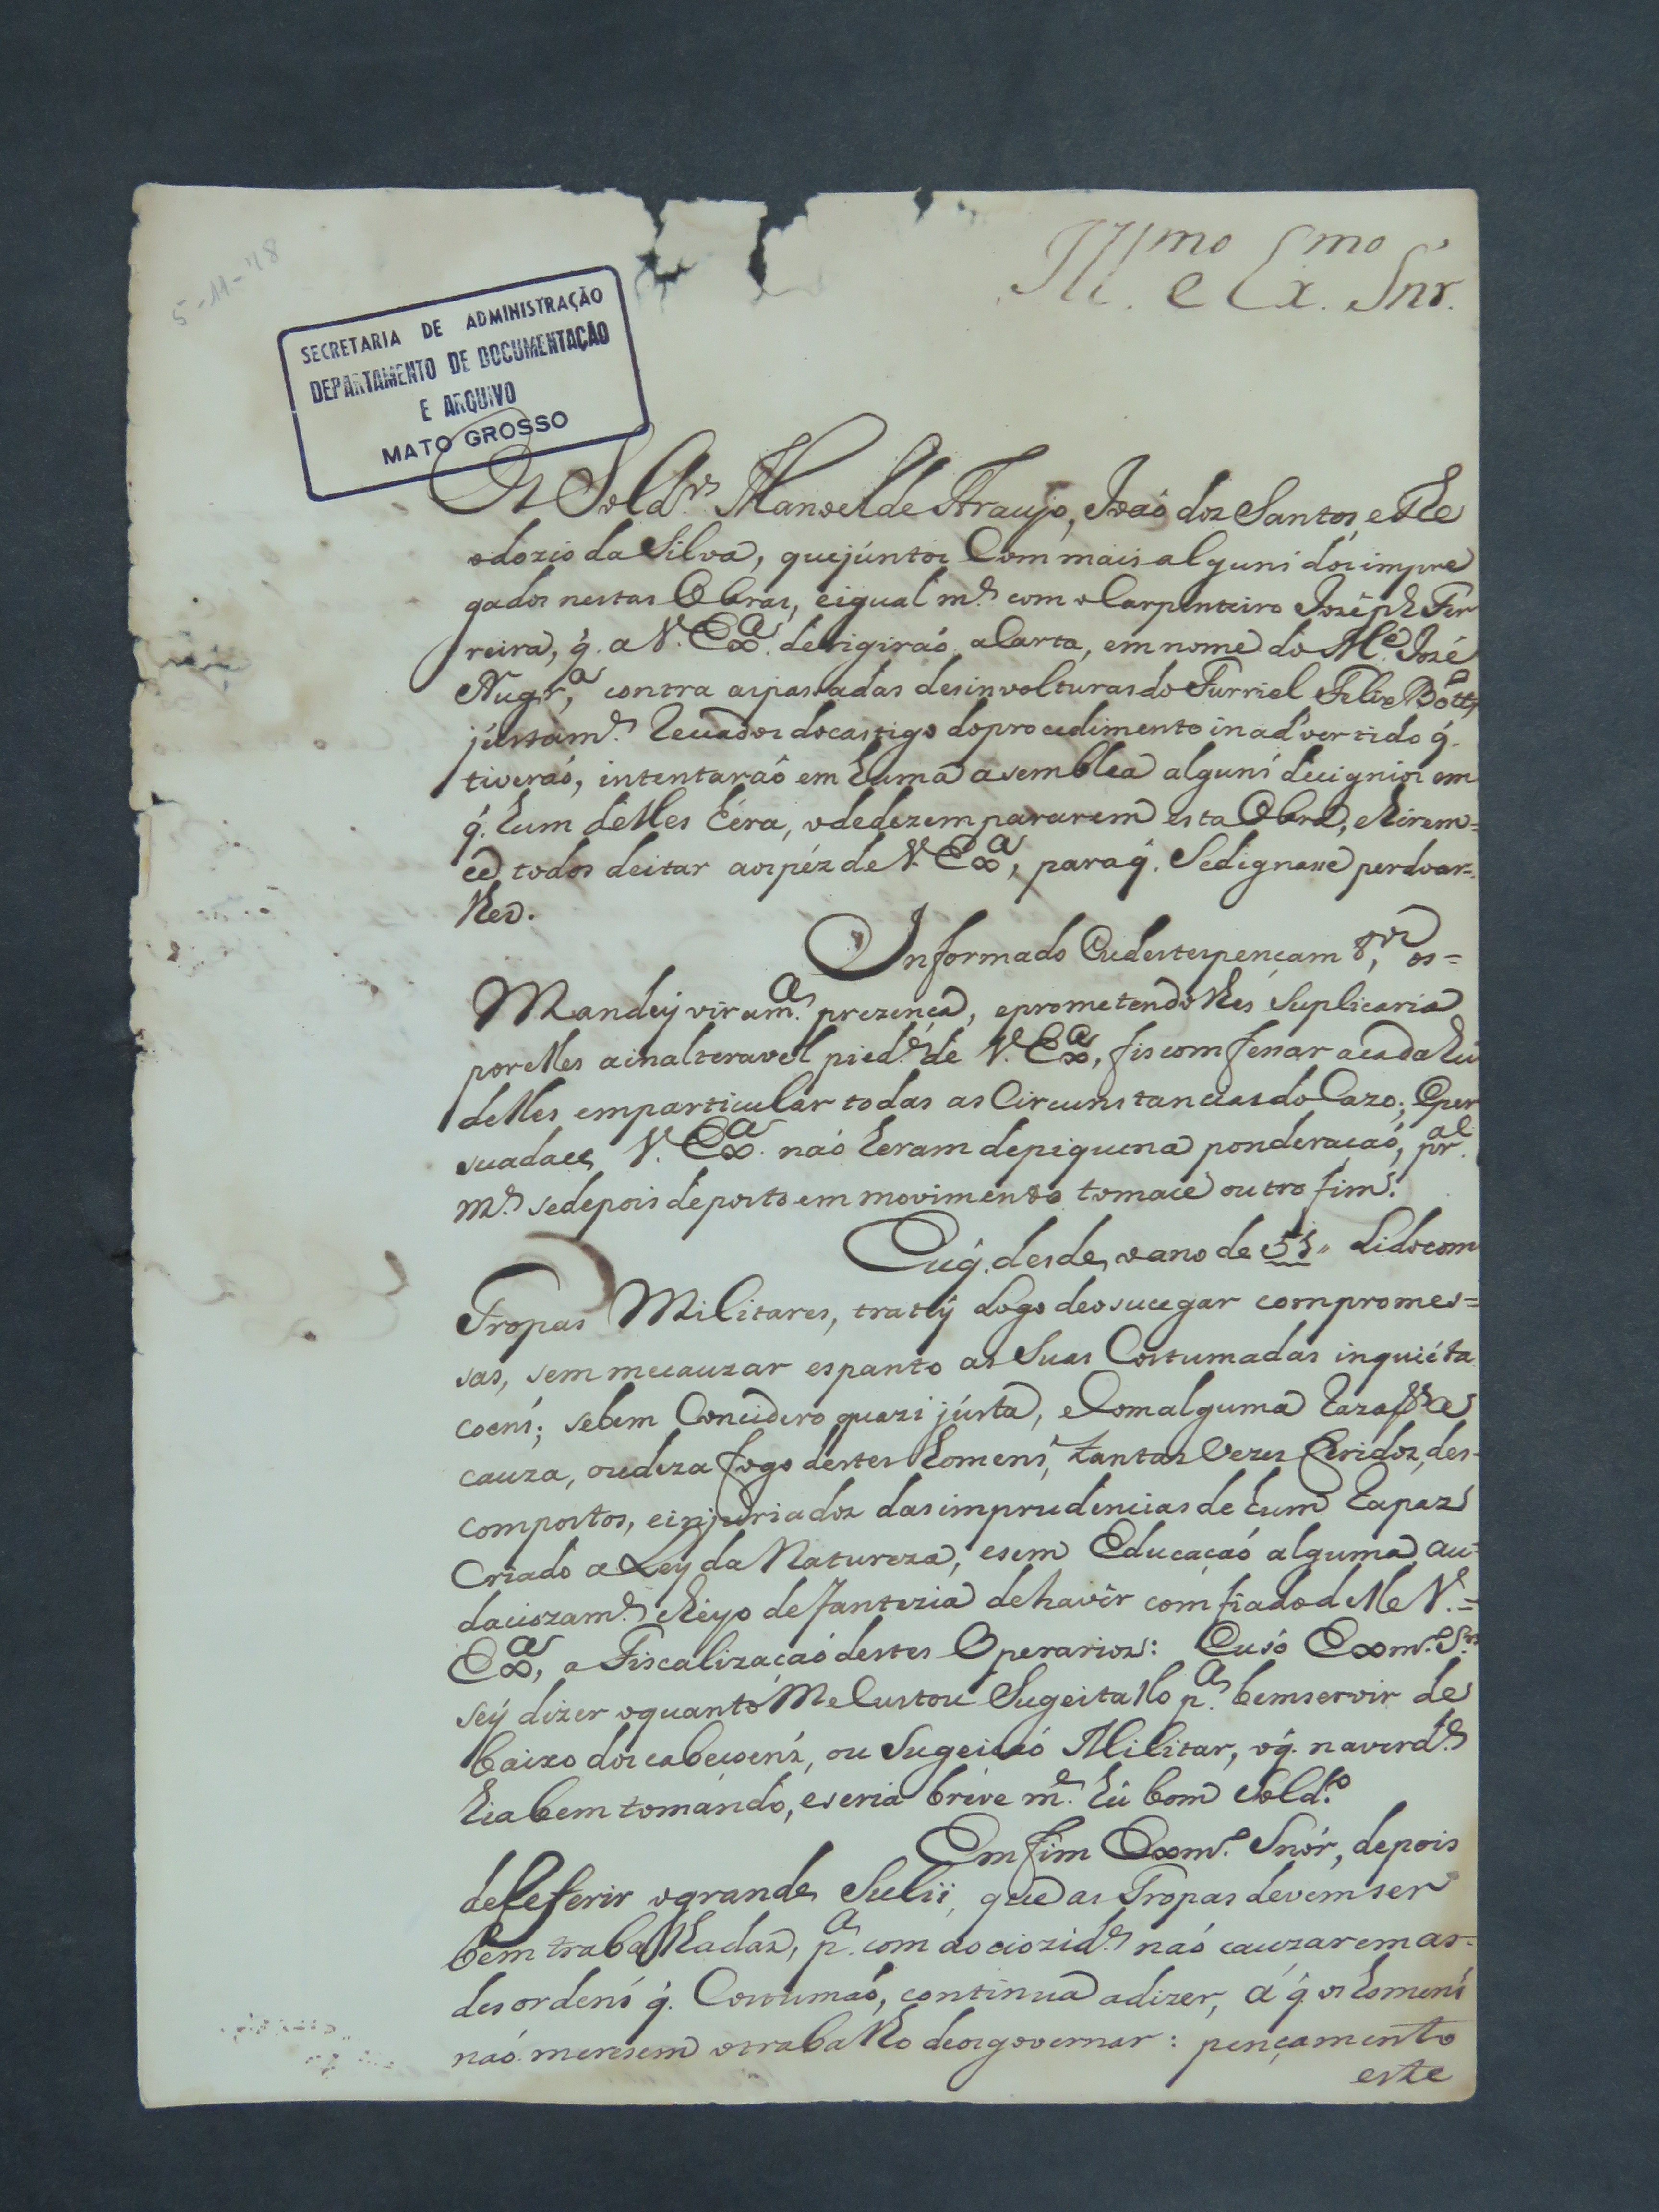 5-11-'18
Ill.mo e Ex.mo Snr.
SECRETARIA DE ADMINISTRAÇÃO
DEPARTAMENTO DE DOCUMENTAÇÃO
E ARQUIVO
MATO GROSSO
Os Sold.os Manoel de Araujo, Joaó dos Santos, e The
odozio da Silva, que júntos Com mais alguns dos impre
gados nestas Obras, e igual m.e com o Carpinteiro Jozéph Fer
reira, q̃. a V. Ex.a derigiraó a Carta, em nome do M.e José
Nugr.a, contra as pasadas desinvolturas do Furriel Felix Bott.o
jústam.e do castigo do procedimento inadvertido q̃.
tiveraó, intentaraó em huma asemblea alguns decignios em
q̃. hum delles héra, o dedezempararem esta Obra, e hirem=
ce todos deitar aos péz de V. Ex.a, para q̃. Se dignase perdoar=
lhes.
Informado Eu destes pençam.tos, os=
Mandey vir a m.a prezença, e prometendo lhes Suplicaria
por elles a inalteravel pied.e de V. Ex.a, fis comfesar a cada hũ
delles em particular todas as Circunstancias do Cazo; e per
suadace V. Ex.a naó heram de piquena ponderacaó, pr.al
m.e se depois de posto em movimento tomace outro fim.
Eu q̃. desde o ano de 51,, Lido com
Tropas Militares, tratey Logo de o sucegar com promes=
sas, sem me cauzar espanto as Suas Costumadas inquiéta
coens; se bem Concidero quazi jústa, e Com alguma razaó a
cauza, ou deza fogo destes homens, tantas Vezes feridos, des-
compostos, e injuriados das imprudencias de hum rapaz
Criado a Ley da Natureza, e sem Educaçaó alguma au-
daciozam.e cheyo de fantezia de haver comfiado delle V.=
Ex.a, a Fiscalizacaó destes Operarios: Eu só Exm.o S.r
sey dizer o quanto Me Custou Sugeitallo p.a bem servir de
baixo dos cabeçoens, ou Sugeicaó Militar, o q̃. na verd.e
hia bem tomando, e seria breve m.e hũ bom Sold.o
Em fim Exm.o Snór, depois
de Referir o grande Sulii, que as Tropas devem ser
bem trabalhadas, p.a com a ociozid.e naó cauzarem as-
desordens q̃. Costumaó, continua a dizer, á q̃. os homens
naó meresem o trabalho de os governar: pençamento
este